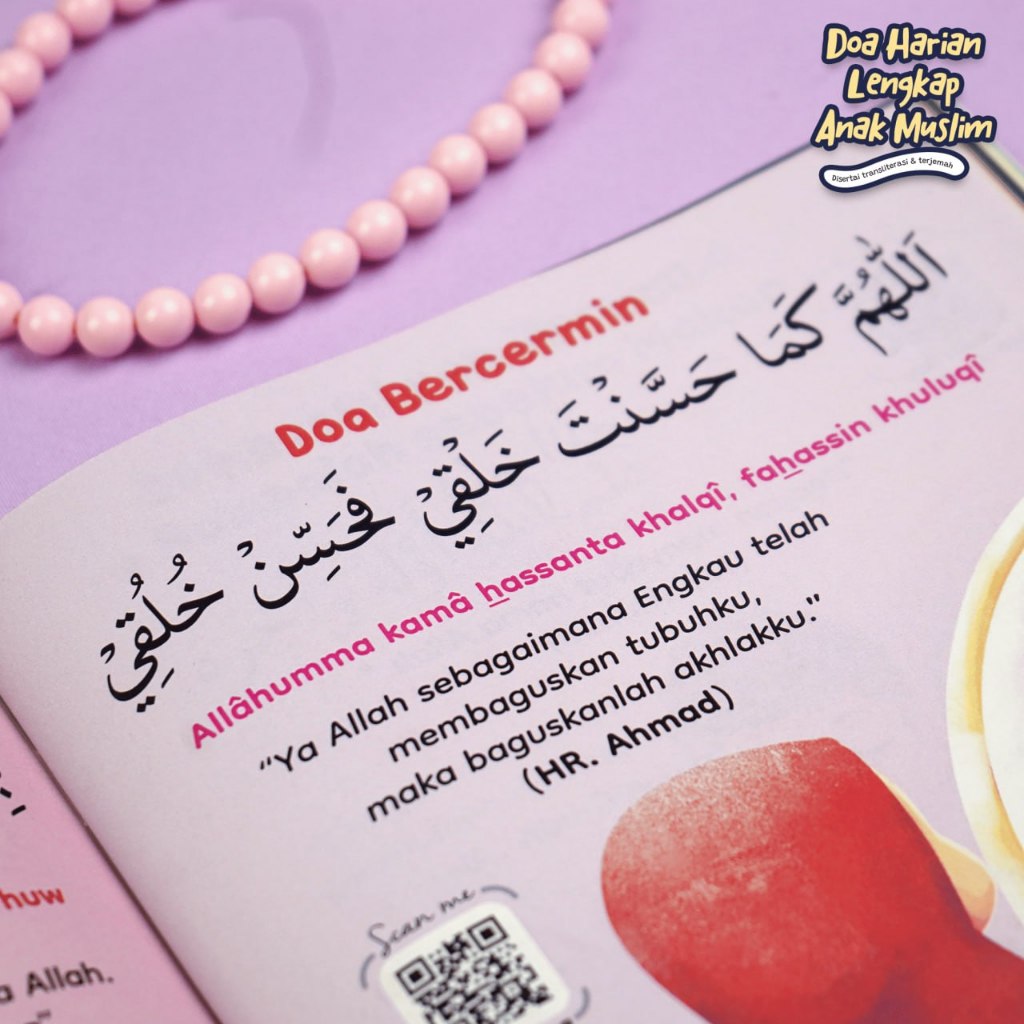 Doa Harian
Lengkap
Anak Muslim
Disertai transliterasi & terjemah
Doa Bercermin
اَللّٰهُمَّ كَمَا حَسَّنْتَ خَلْقِيْ فَحَسِّنْ خُلُقِيْ
Allâhumma kamâ hassanta khalqî, fahassin khuluqî
“Ya Allah sebagaimana Engkau telah
membaguskan tubuhku,
maka baguskanlah akhlakku.”
(HR. Ahmad)
Scan me
huw
Allah.